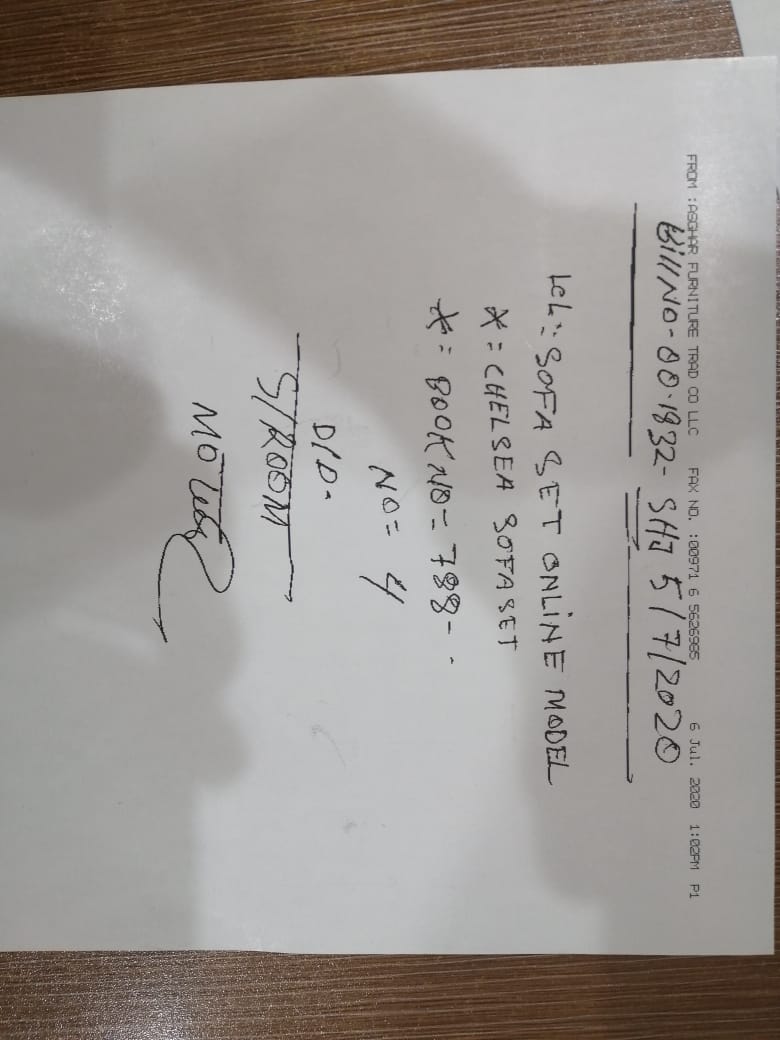 FROM :ASGHAR FURNITURE TRAD CO LLC FAX NO. :00971 6 5626985 6 Jul. 2020 1:02PM P1
Bill NO-00.1832- SHJ 5/7/2020
LCL:- SOFA SET ONLINE MODEL
* = CHELSEA SOFA SET
* = BOOK NO= 788-
NO= 4
D/D.
S/ROOM